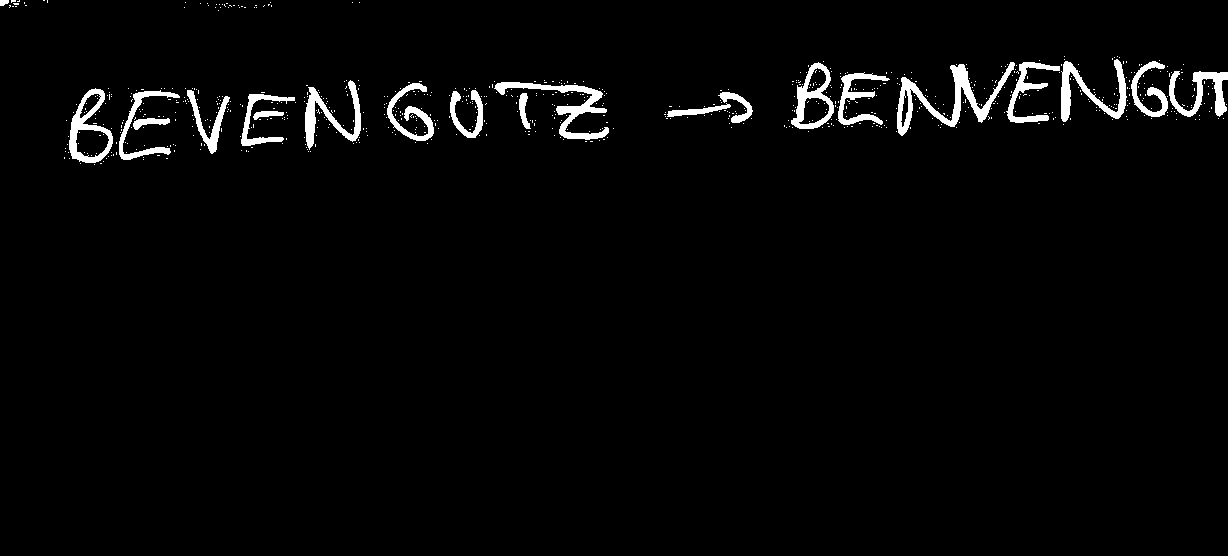 BEVENGUTZ → BENVENGUT